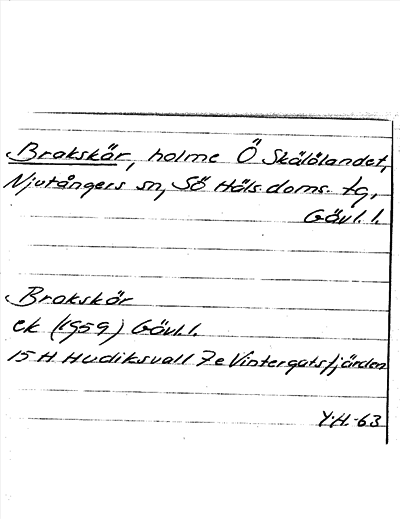 Brakskär, holme Ö Skålölandet,
Njutångers sn, Sö Häls. doms. tg,
Gävl. l.
Brakskär
ek (1959) Gävl. l.
15 H Hudiksvall 7e Vintergatsfjärden
Y.H.-63